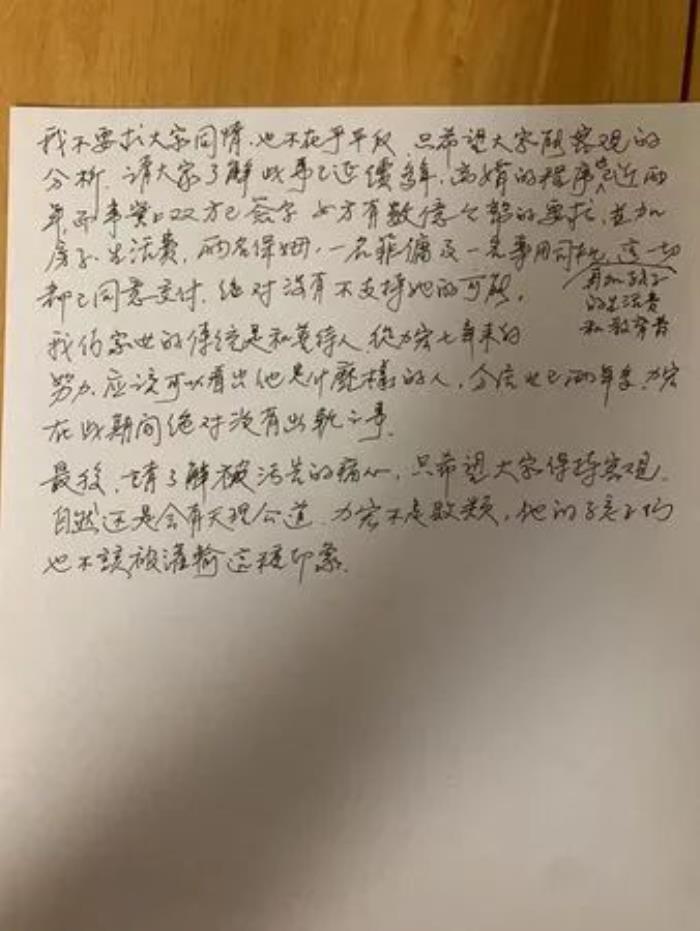 我不要求大家同情,也不在乎平反,只希望大家能客观的
分析,请大家了解此事已延續多年,离婚的程序也近两
年,而事实上双方已签字,女方有数億台幣的要求,並加
房子,生活费,两名保姆,一名菲傭及一名專用司机,這一切
再加孩子
都已同意交付,绝对沒有不支持她的可能。
的生活费
和教育费
我们家世的传统是和善待人,從力宏七年来的
努力,应该可以看出他是什麼樣的人,分居也已两年多,力宏
在此期间绝对沒有出軌之事。
最後,請了解被污告的痛心,只希望大家保持客观,
自然还是会有天理公道,力宏不是败類,他的孩子们
也不該被灌輸這種印象.